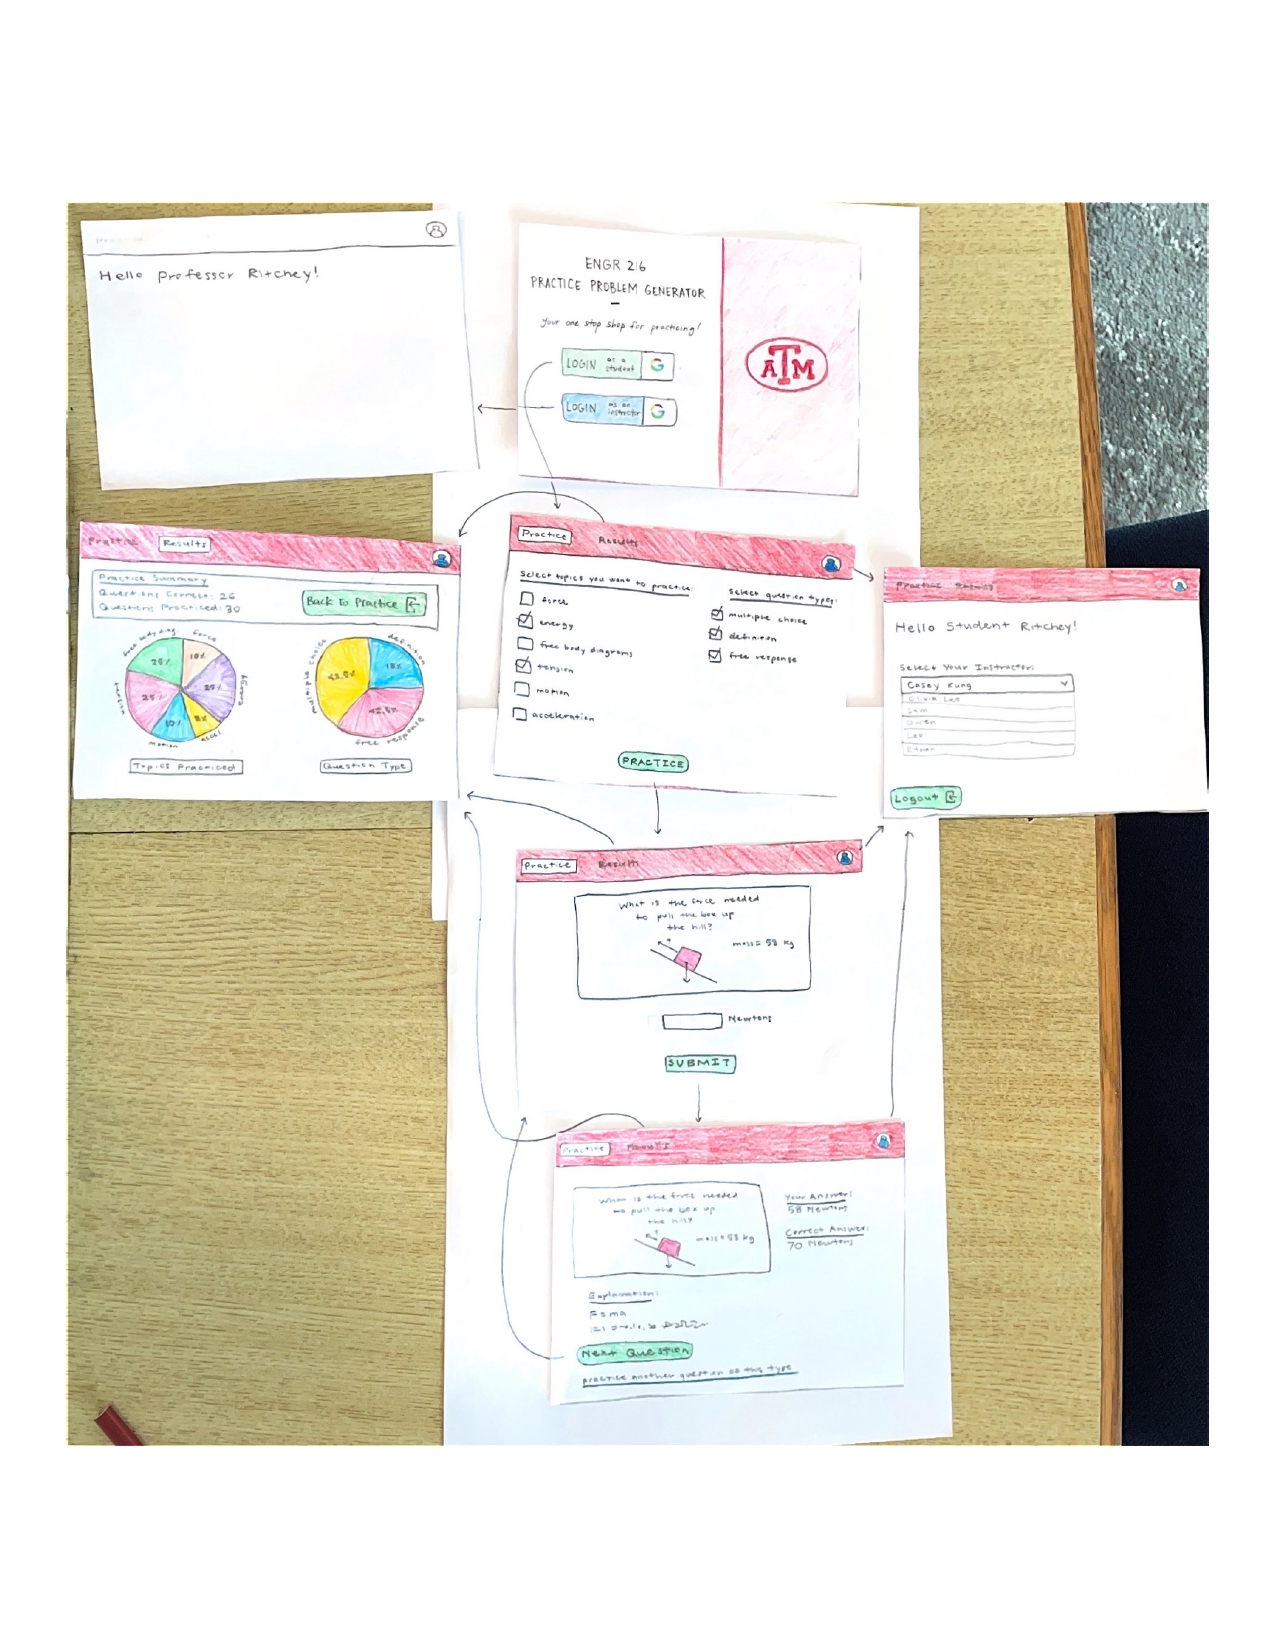 Hello Professor Ritchey!
ENGR 216
PRACTICE PROBLEM GENERATOR
Your one stop shop for practicing!
LOGIN as a student G
LOGIN as an instructor G
ATM
Practice Results
Practice Summary
Questions Correct: 26
Questions Practiced: 30
Back To Practice
free body diag
force
energy
accel
motion
tension
25%
10%
25%
10%
25%
Topics Practiced
multiple choice
definition
free response
42.5%
15%
42.5%
Question Type
Practice Results
Select topics you want to practice:
force
energy
free body diagrams
tension
motion
acceleration
Select question types:
multiple choice
definition
free response
PRACTICE
Practice Results
Hello Student Ritchey!
Select Your Instructor:
Casey Kung
Olivia Lee
Sam
Owen
Leo
Ethan
Logout
Practice Results
What is the force needed
to pull the box up
the hill?
mass = 58 kg
Newtons
SUBMIT
Practice Results
What is the force needed
to pull the box up
the hill?
mass = 58 kg
Your Answer:
58 Newtons
Correct Answer:
70 Newtons
Explanation:
F = ma
Next Question
practice another question of this type